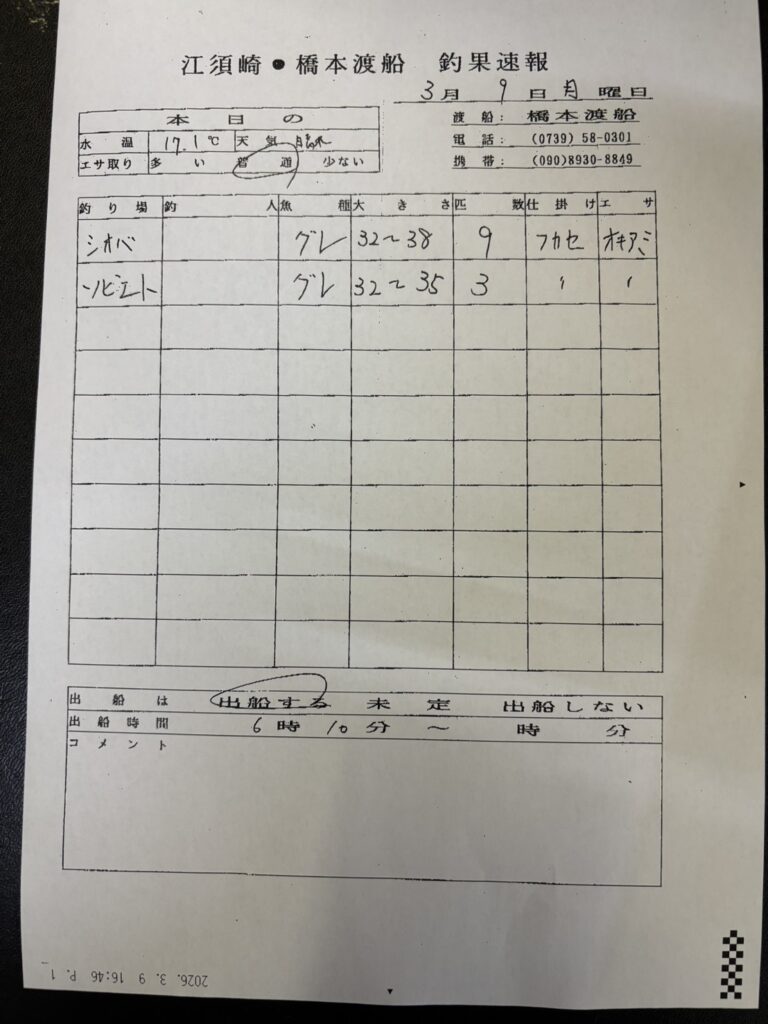 江須崎●橋本渡船 釣果速報
3月 9日 月曜日
渡船: 橋本渡船
電話: (0739) 58-0301
携帯: (090)8930-8849
本日の
水温 17.1℃ 天気
エサ取り 多い 普通 少ない
釣り場 釣人 魚種 大きさ 匹数 仕掛け エサ
シオバ グレ 32〜38 9 フカセ オキアミ
ソビエト グレ 32〜35 3 〃 〃
出船は 出船する 未定 出船しない
出船時間 6時10分〜 時 分
コメント
2026. 3. 9 16:46 P. 1